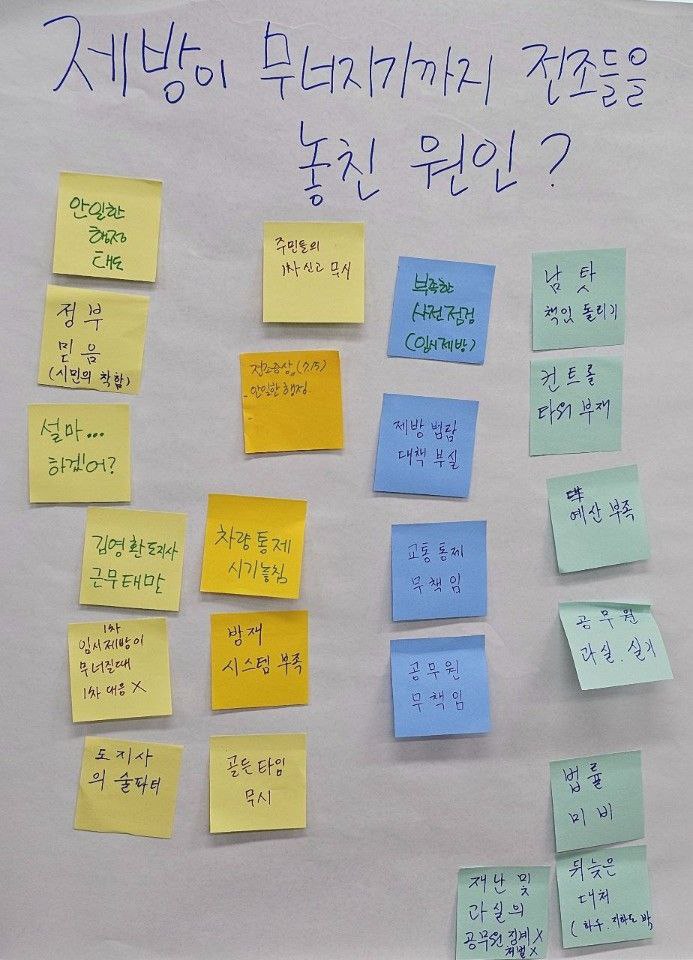 제방이 무너지기까지 전조들을
놓친 원인?
안일한
행정
태도
정부
믿음
(시민의 착함)
설마...
하겠어?
김영환도지사
근무태만
1차
임시제방이
무너질때
1차 대응 X
도지사
의 술파티
주민들의
1차 신고 무시
전조증상 (7/15)
- 안일한 행정
-
차량통제
시기놓침
방재
시스템 부족
골든타임
무시
부족한
사전점검
(임시제방)
제방 범람
대책 부실
교통통제
무책임
공무원
무책임
남 탓
책임 돌리기
컨트롤
타워 부재
예산 부족
공무원
과실.
법률
미비
뒤늦은
대처
(하수. 지하도
재난 및
과실의
공무원 징계 X
처벌 X